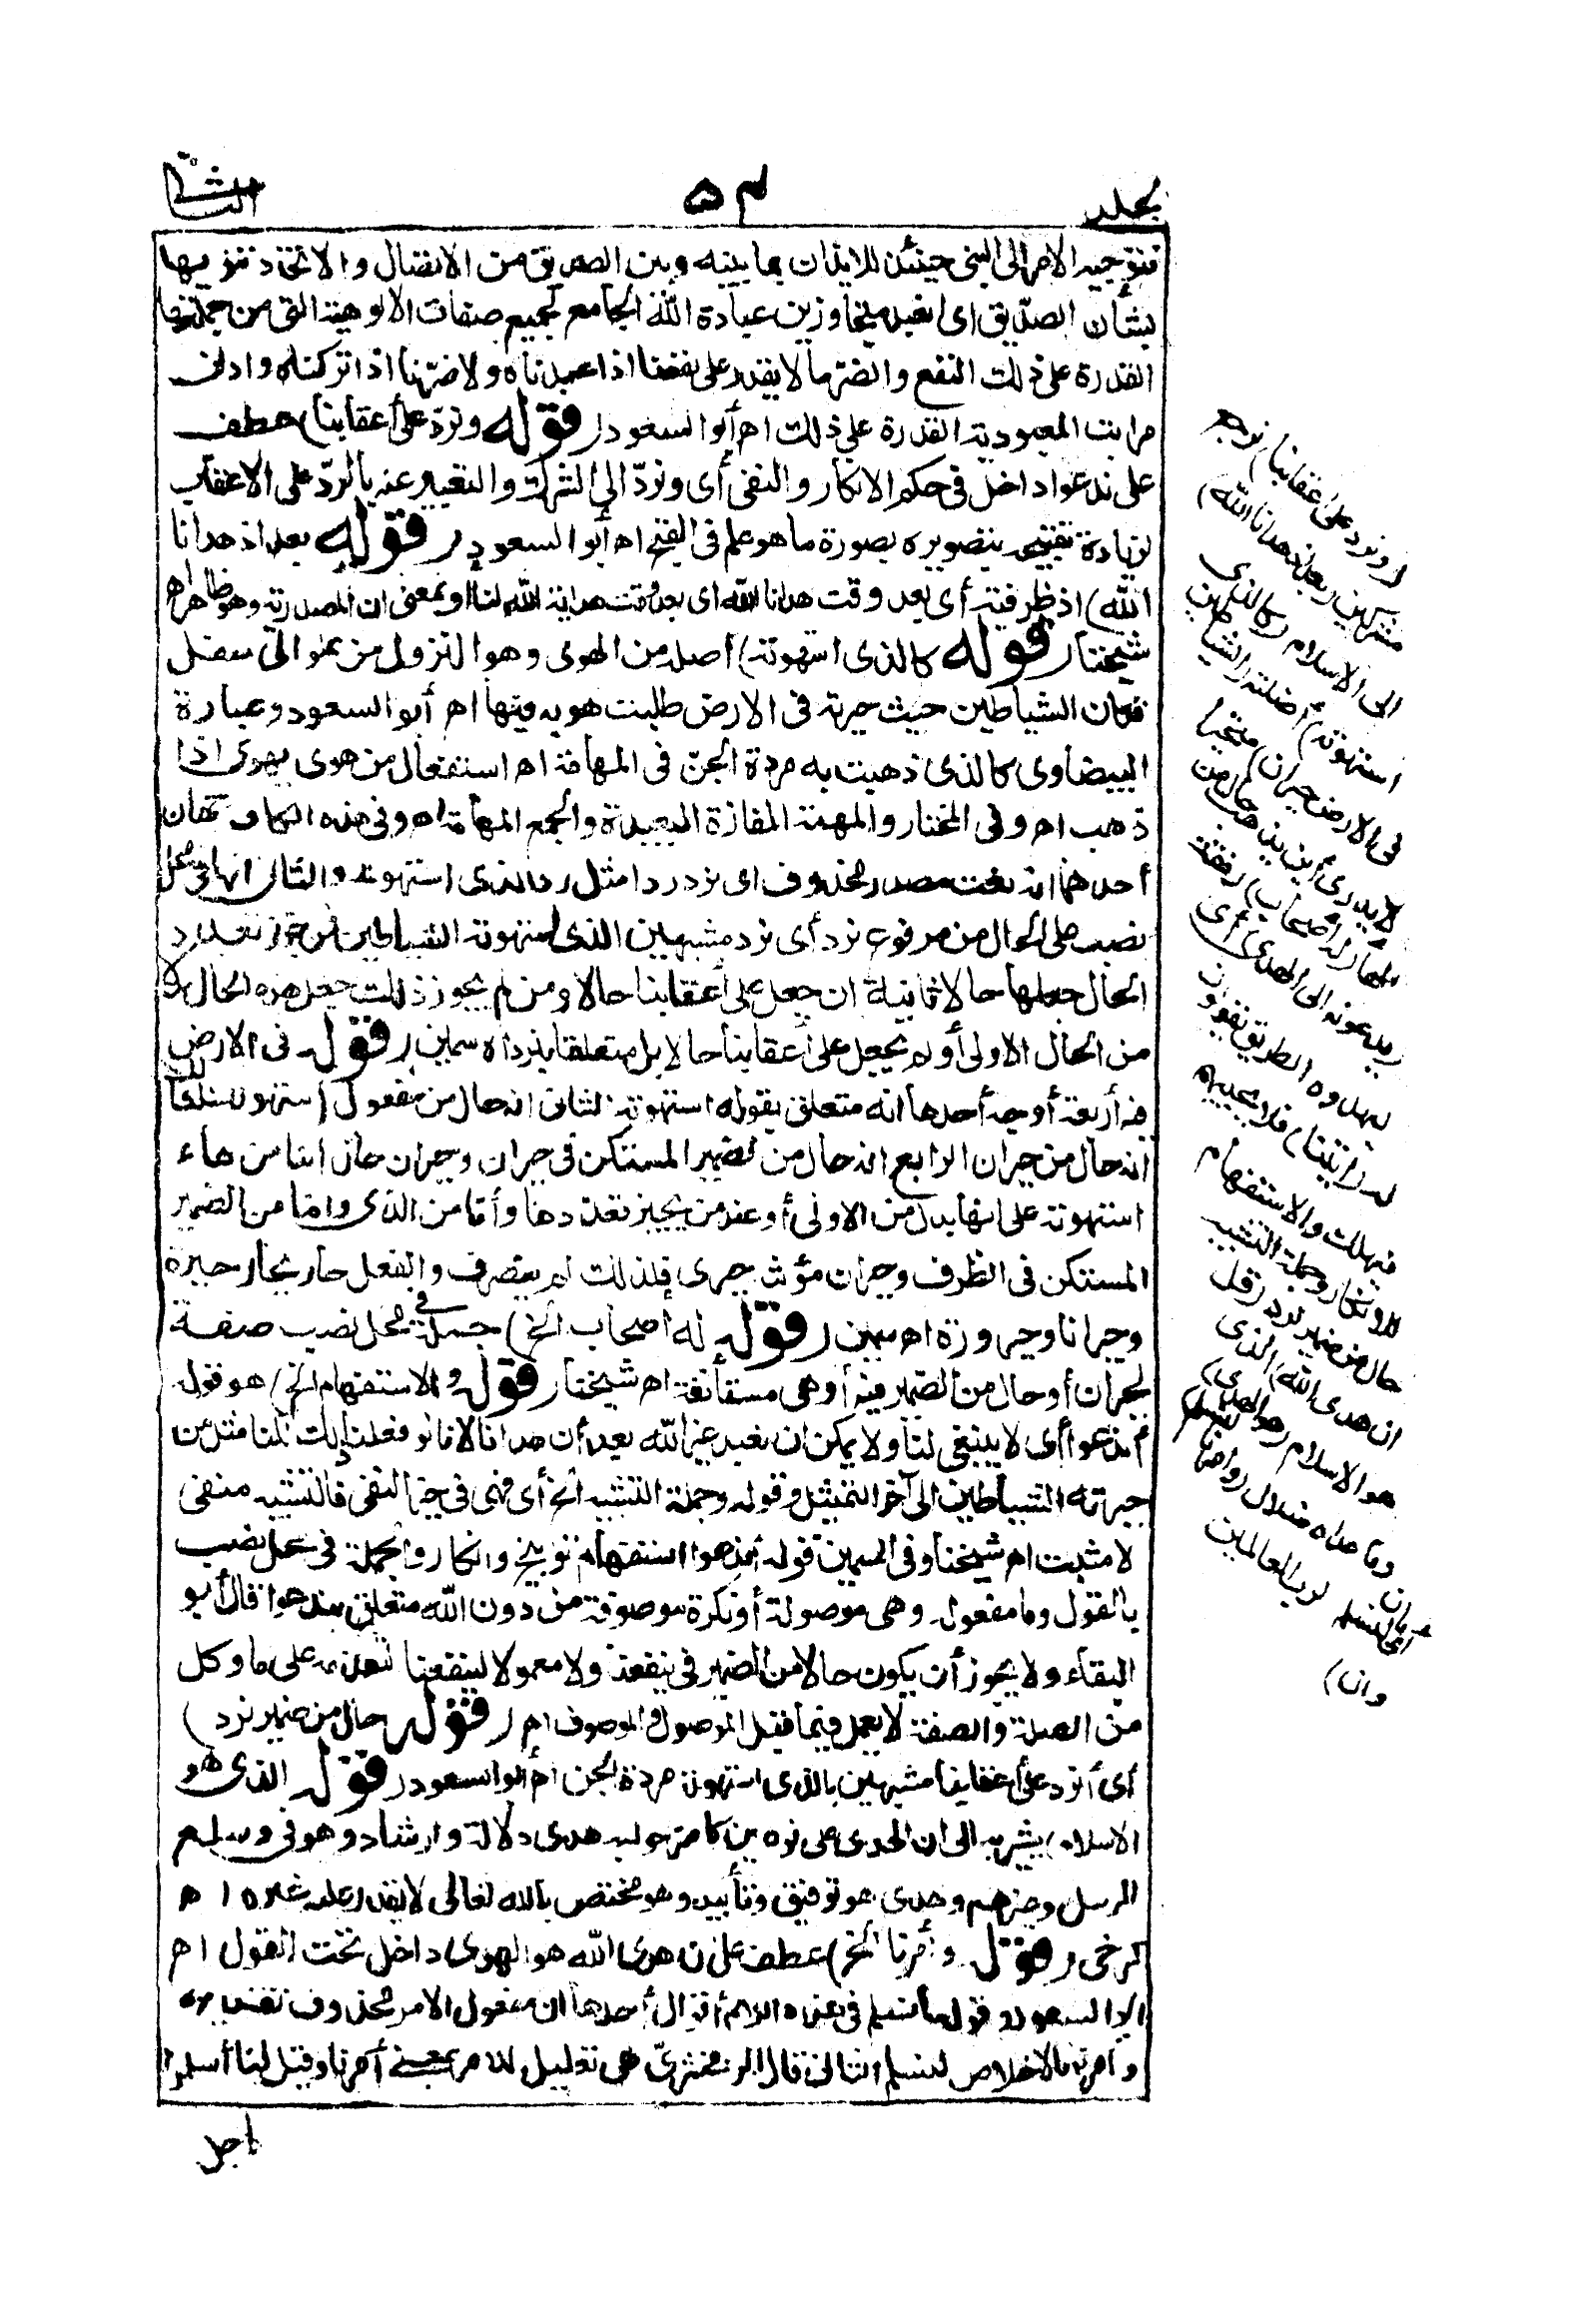 مجلد
٥٣
الثاني
فتوجيه الامر الى النبي حينئذ للايذان بما بينه وبين الصديق من الاتصال والاتحاد تنويها
بشأن الصديق اى انعبد متجاوزين عبادة الله الجامع لجميع صفات الالوهية التى من جملتها
القدرة على ذلك النفع والضر ما لا يقدر على نفعنا اذا عبدناه ولا ضرنا اذا تركناه وادنى
مراتب المعبودية القدرة على ذلك اه أبو السعود (قوله ونرد على أعقابنا) عطف
على ندعوا داخل فى حكم الانكار والنفى أى ونرد الى الشرك والتعبير عنه بالرد على الاعقاب
لزيادة تقبيحه بتصويره بصورة ما هو علم فى القبح اه أبو السعود (قوله بعد اذ هدانا
الله) اذ ظرفية أى بعد وقت هدانا الله اى بعد وقت هداية الله لنا او بمعنى ان المصدرية وهو ظاهر اه
شيخنا (قوله كالذى استهوته) أصله من الهوى وهو النزول من علو الى سفل
فكان الشياطين حيث حيرته فى الارض طلبت هويه فيها اه أبو السعود وعبارة
البيضاوى كالذى ذهبت به مردة الجن فى المهامة اه استفعال من هوى يهوى اذا
ذهب اه وفى المختار والمهمة المفازة البعيدة والجمع المهامة اه وفى هذه الكاف وجهان
أحدهما انه نعت مصدر محذوف اى نرد ردا مثل رد الذى استهوته والثانى انها فى محل
نصب على الحال من مرفوع نرد أى نرد مشبهين الذى استهوته الشياطين فمن جوز تعدد
الحال جعلها حالا ثانية ان جعل على أعقابنا حالا ومن لم يجوز ذلك جعل هذه الحال بدلا
من الحال الاولى أو لم يجعل على أعقابنا حالا بل متعلقا بنرد اه سمين (قوله فى الارض
فيه أربعة أوجه أحدها انه متعلق بقوله استهوته الثانى انه حال من مفعول استهوته الثالث
انه حال من حيران الرابع انه حال من الضمير المستكن فى حيران وحيران حال اما من هاء
استهوته على انها بدل من الاولى أو عند من يجيز تعددها وأما من الذى واما من الضمير
المستكن فى الظرف وحيران مؤنث حيرى فلذلك لم ينصرف والفعل حار يحار حيرة
وحيرانا وحيرورة اه سمين (قوله له اصحاب الخ) جملة فى محل نصب صفة
لحيران أو حال من الضمير فيه أو هى مستأنفة اه شيخنا (قوله والاستفهام الخ) هو قوله
أندعوا أى لا ينبغى لنا ولا يمكن ان نعبد غير الله بعد أن هدانا لانا لو فعلنا ذلك لكنا مثل من
حيرته الشياطين الى آخر التمثيل وقوله وجملة التشبيه الخ أى فهى فى حيز النفى فالتشبيه منفى
لا مثبت اه شيخنا وفى السمين قوله أندعوا استفهام توبيخ وانكار والجملة فى محل نصب
بالقول وما مفعوله وهى موصولة أو نكرة موصوفة من دون الله متعلق بندعوا قال أبو
البقاء ولا يجوز أن يكون حالا من الضمير فى ينفعنا ولا معمولا لينفعنا لتعدمه على ما وكل
من الصلة والصفة لا يعمل فيما قبل الموصول والموصوف اه (قوله حال من ضمير نرد)
أى أنرد على أعقابنا مشبهين بالذى استهوته مردة الجن اه أبو السعود (قوله الذى هو
الاسلام) يشير به الى ان الهدى على نوعين كما مر حوليه هدى دلالة وارشاد وهو فى وسع
الرسل وغيرهم وهدى هو توفيق وتأييد وهو مختص بالله تعالى لا يقدر عليه غيره اه
كرخى (قوله وأمرنا الخ) عطف على ان هدى الله هو الهدى داخل تحت القول اه
ابو السعود وقوله لنسلم فى هذه اللام أقوال أحدها ان مفعول الامر محذوف تقديره
وأمرنا بالاخلاص لنسلم الثانى قال الزمخشرى هى تعليل للامر بمعنى أمرنا وقيل لنا أسلموا
اجل
(ونرد على أعقابنا) نرجع
مشركين (بعد اذ هدانا الله)
الى الاسلام (كالذى
استهوته) أضلته (الشياطين
فى الارض حيران) متحيرا
لا يدرى أين يذهب حال من
الهاء (له أصحاب) رفقة
(يدعونه الى الهدى) أى
ليهدوه الطريق يقولون
له (ائتنا) فلا يجيبهم
فيهلك والاستفهام
للانكار وجملة التشبيه
حال من ضمير نرد (قل
ان هدى الله) الذى
هو الاسلام (هو الهدى)
وما عداه ضلال (وامرنا
لنسلم) أى بان نسلم
لرب العالمين
وان)